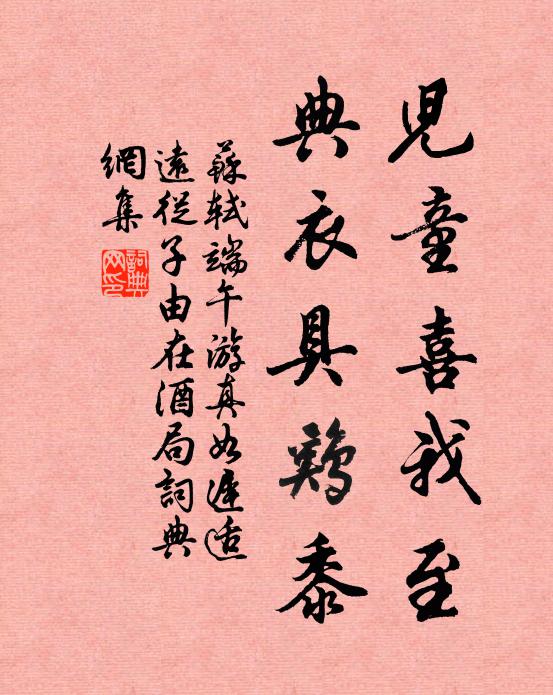 兒童喜我至
典衣具鷄黍
蘇軾端午游真如遲适
遠從子由在酒局詞典
網集
詞典網印